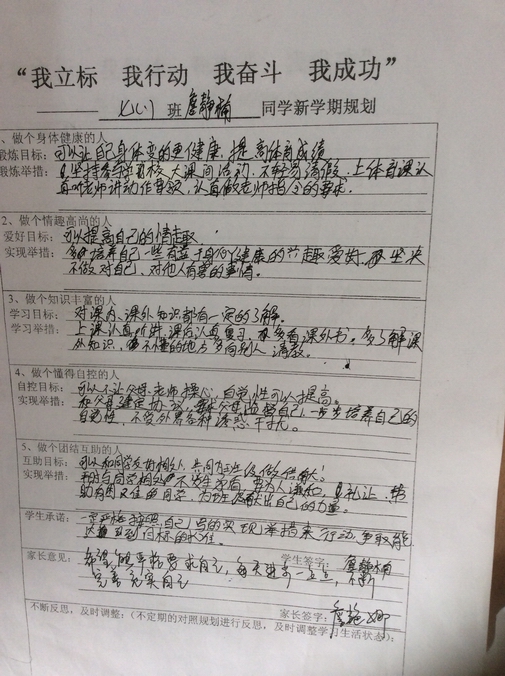 “我立标 我行动 我奋斗 我成功”
七(1) 班 詹静楠 同学新学期规划
、做个身体健康的人
锻炼目标：可以让自己身体变的更健康，提高体育成绩
锻炼举措：坚持 大课间活动，不轻易请假，上体育课认
真听老师讲动作要领，认真做老师指令的要求。
2、做个情趣高尚的人
爱好目标：可以提高自己的情趣
实现举措：培养自己一些有益于身心健康的 趣爱好，坚决
不做对自己，对他人有害的事情。
3、做个知识丰富的人
学习目标：对课内、课外知识都有一定的了解。
学习举措：上课认真听讲，课后认真复习，多看课外书。多了解课
外知识，不懂的地方多向他人请教。
4、做个懂得自控的人
自控目标：可以不让父母、老师操心，自觉性可以提高。
实现举措：和父母建定协议，父母监督自己，一步步培养自己的
自觉性，不受外界各种诱惑干扰。
5、做个团结互助的人
互助目标：可以和同学友好相处，共同为班级做贡献！
实现举措：与同学相处 不发生矛盾， 礼让，帮
助有困难的同学，为班级献出自己的力量。
学生承诺：一定严格按照自己写的实现举措来行动，争取能
达到目标的
家长意见：希望能严格要求自己，每天进步一点点，不断
完善充实自己
学生签字：詹静楠
家长签字：詹艳娜
不断反思，及时调整：(不定期的对照规划进行反思，及时调整学习生活状态)：